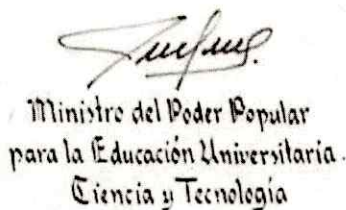 Ministro del Poder Popular
para la Educación Universitaria.
Ciencia y Tecnología